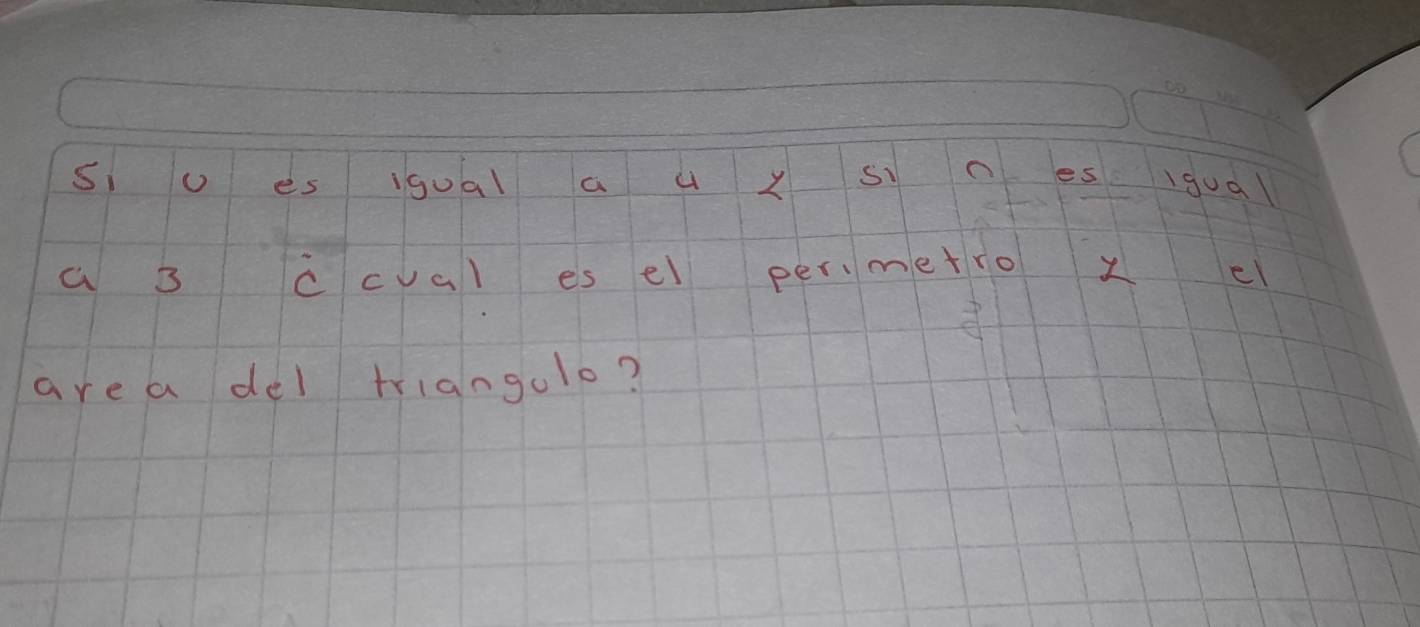 Si u es igual a 4 y si n es igual
a 3 ¿ cual es el perimetro y el
area del triangulo?